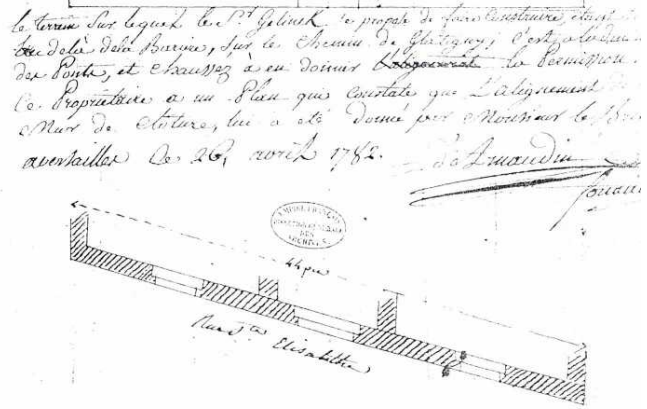 le terrein Sur lequel le Sr. Gelinek se propose de faire Construire étant
au delà de la Bariere, Sur le Chemin de Glatigny; C'est
des Ponts, et Chaussez à en donner la Permission.
Ce Proprietaire a un Plan qui Constate que L'alignement
Mur de Cloture, lui a eté donné par Monsieur le
aversailles Ce 26, avril 1782.
EMPIRE FRANÇAIS
DIRECTION GENERALE
DES
ARCHIVES
44 pie
Rue Ste Elisabethe